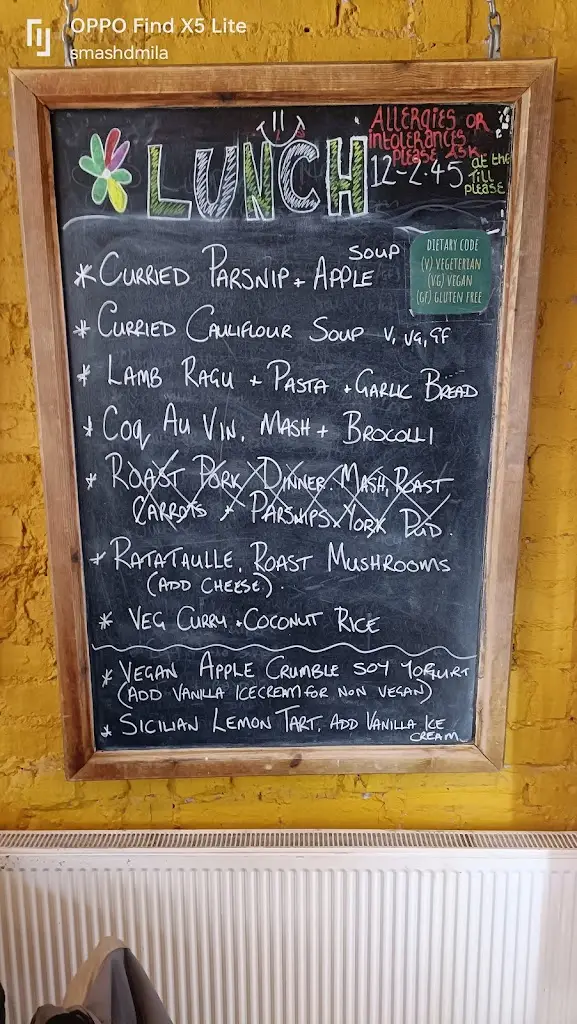 OPPO Find X5 Lite
smashdmila
LUNCH
ALLERGIES OR
INTOLERANCES
PLEASE ASK
12-2.45
at the
Till
PLEASE
DIETARY CODE
(V) VEGETERIAN
(VG) VEGAN
(GF) GLUTEN FREE
* CURRIED PARSNIP + APPLE SOUP
* CURRIED CAULIFLOUR SOUP V, VG, GF
* LAMB RAGU + PASTA + GARLIC BREAD
* COQ AU VIN, MASH + BROCOLLI
* ROAST PORK DINNER. MASH, ROAST
CARROTS + PARSNIPS. YORK PUD.
* RATATAULLE, ROAST MUSHROOMS
(ADD CHEESE).
* VEG CURRY + COCONUT RICE
* VEGAN APPLE CRUMBLE SOY YOGURT
(ADD VANILLA ICECREAM FOR NON VEGAN)
* SICILIAN LEMON TART, ADD VANILLA ICE
CREAM